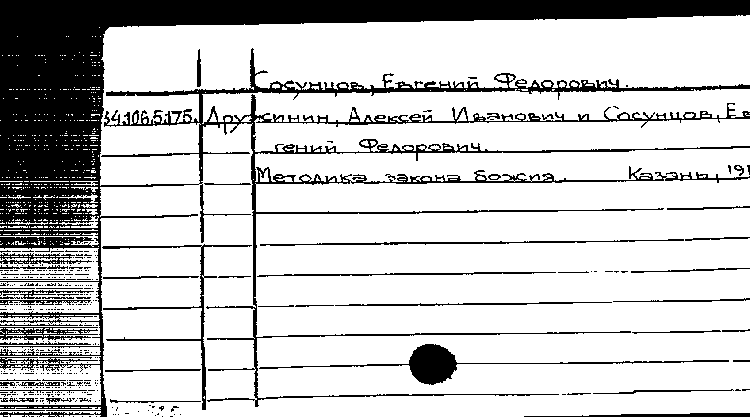 Сосунцов, Евгений Федорович.
34:106.5:175. Дружинин, Алексей Иванович и Сосунцов, Ев
гений Федорович.
Методика закона божия. Казань, 191